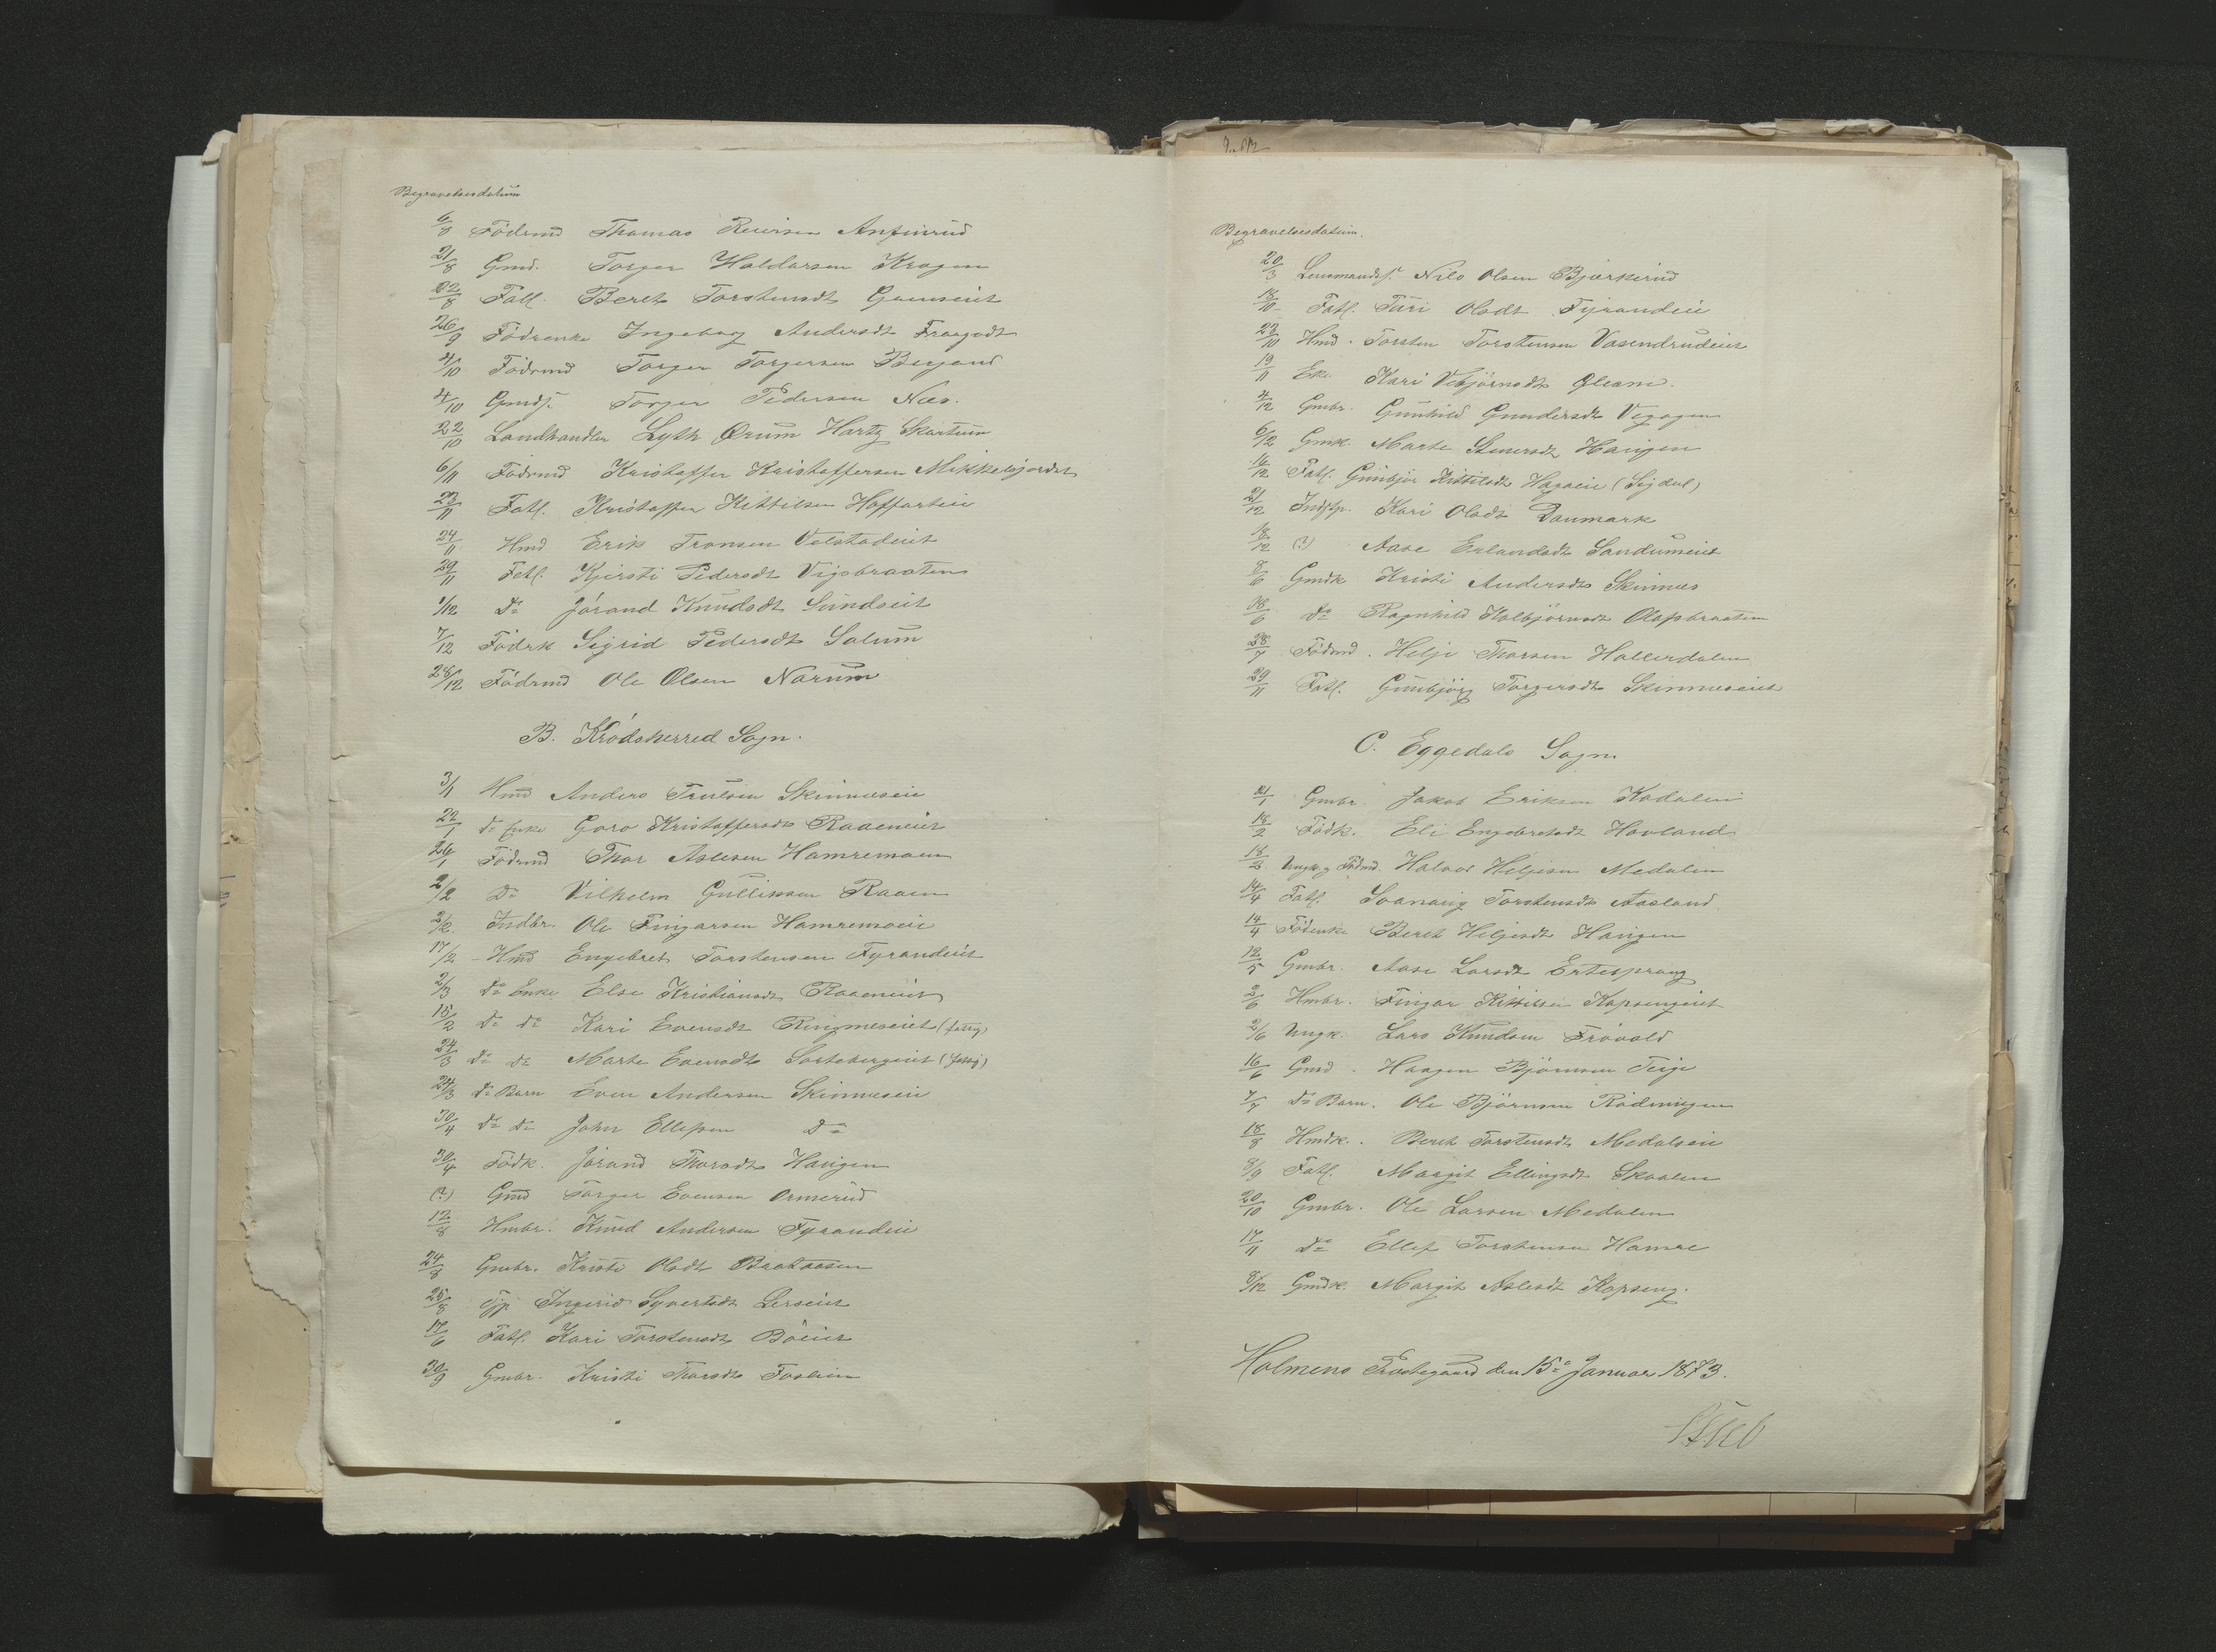 Begravelsesdatum
6/8 Födrmd Thomas Reiersen Anfinrud
21/8 Gmd. Torger Haldorsen Kragen
22/8 Fatl. Beret Torstensdt
26/9 Födrenke Ingeborg Andersdt
4/10 Födrmd Torger Torgersen Bergand
4/10 Torger Pedersen Næs.
22/10 Landhandler Lyth Ørum Hartz Skartum
6/11 Födrmd Kristoffer Kristoffersen Mikkelsjordet
23/11 Fatl. Kristoffer Kittilsen Hoffarteie
24/11 Hmd Erik Tronsen Velstadeiet
29/11 Fatl. Kjersti Pedersdt Vigsbraaten
1/12 Do Jörand Knudsdt Sundseiet
7/12 Födrk Sigrid Pedersdt Solum
28/12 Födrmd Ole Olsen Narum
B. Krödsherred Sogn.
3/1 Hmd Anders Trulsen Skinneseie
22/1 Do Enke Goro Kristoffersdt Raaeneiet
26/1 Födrmd Thor Aslesen Hamremoen
2/2 Do Vilhelm Gulliksen Raaen
2/2. Indbr. Ole Fingarsen Hamremoeie
17/2 - Hmd Engebret Torstensen Fyrandeiet
2/3 Do Enke Else Kristiansdt Raaeneiet
18/2 Do Do Kari Evensdt Ringneseiet (fattig)
24/3 Do Do Marte Evensdt Sortebergeiet (fattig)
24/3 Do Barn Even Andersen Skinneseie
30/4 Do Do John Ellefsen Do
30/4 Födk. Jörand Thorsdt Haugen
(?) Gmd Torger Evensen Ormerud
12/8 Hmbr. Knud Andersen Fyrandeie
24/8 Gmbr. Kristi Olsdt
25/8 Tjp Ingerid Syvertsdt Lerseiet
17/6 Fatl. Kari Torstensdt Böeiet
30/9 Gmbr. Kristi Thorsdt Foslien
Begravelsesdatum.
20/3 Nils Olsen Bjørkerud
18/10 Fatl. Turi Olsdt Fyrandeie
23/10 Hmd. Torsten Torstensen Vasendrudeiet
19/11 Enke Kari Vebjörnsdt Gleane.
4/12 Gmbr. Gunhild Gundersdt
6/12 Gmk. Marte Stenersdt Haugen
16/12 Fatl. Gunbjör Kittilsdt Hagaeie (Sigdal)
21/12 Kari Olsdt Danmark
18/12 (?) Aase Erlandsdt Sandumeiet
8/6 Gmdk Kristi Andersdt Skinnes
18/6 Do Ragnhild Halbjörnsdt Olafsbraaten
28/7 Födrmd. Helje Thorsen Hallerdalen
29/11 Fatl. Gunbjörg Torgersdt Skinneseiet
C. Eggedals Sogn
21/1 Gmbr. Jakob Eriksen Kadalen
18/2 Födk. Eli Engebretsdt Hovland
18/2 Ungk. g Födmd. Halvor Heljesen Medalen
14/4 Fatl. Svanaug Torstensdt Aasland
14/4 Födenke Beret Heljesdt Haugen
12/5 Gmbr. Aase Larsdt Ertesprang
2/6 Hmbr. Fingar Kittilsen Kopsengeiet
2/6 Ungk. Lars Knudsen Frövold
16/6 Gmd. Haagen Björnsen Teige
7/7 Do Barn. Ole Björnsen Rödningen
18/8 Hmdk. Beret Torstensdt Medalseie
8/9 Fatl. Margit Ellingsdt Skaalen
20/10 Gmbr. Ole Larsen Medalen
17/11 Do Ellef Torstensen Hamre
8/12 Gmdk. Margit Aslesdt Kopseng.
Holmens Præstegaard den 15de Januar 1873.